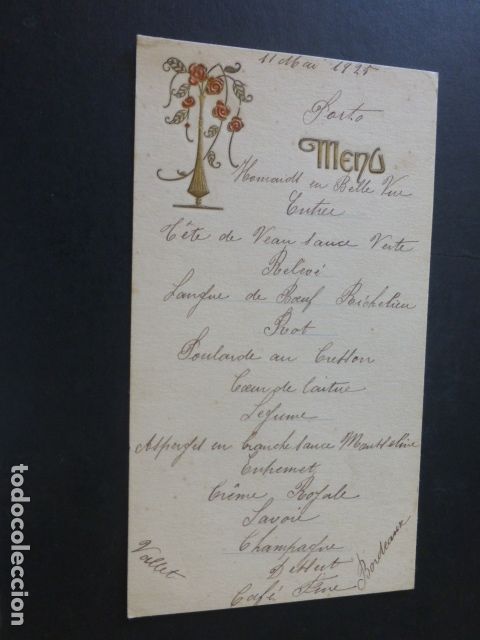 11 Mai 1925
Porto
MENU
Homardt en Belle Vue
Entree
Tête de Veau sauce Verte
Relevé
Langue de Bœuf Richelieu
Rot
Poularde au Cresson
Cœur de laitue
Legume
Asperges en branche sauce Mousseline
Entremet
Crême Royale
Savoie
Champagne
Dessert
Café Fine
Vallet
Bordeaux
todocoleccion
todocoleccion.net